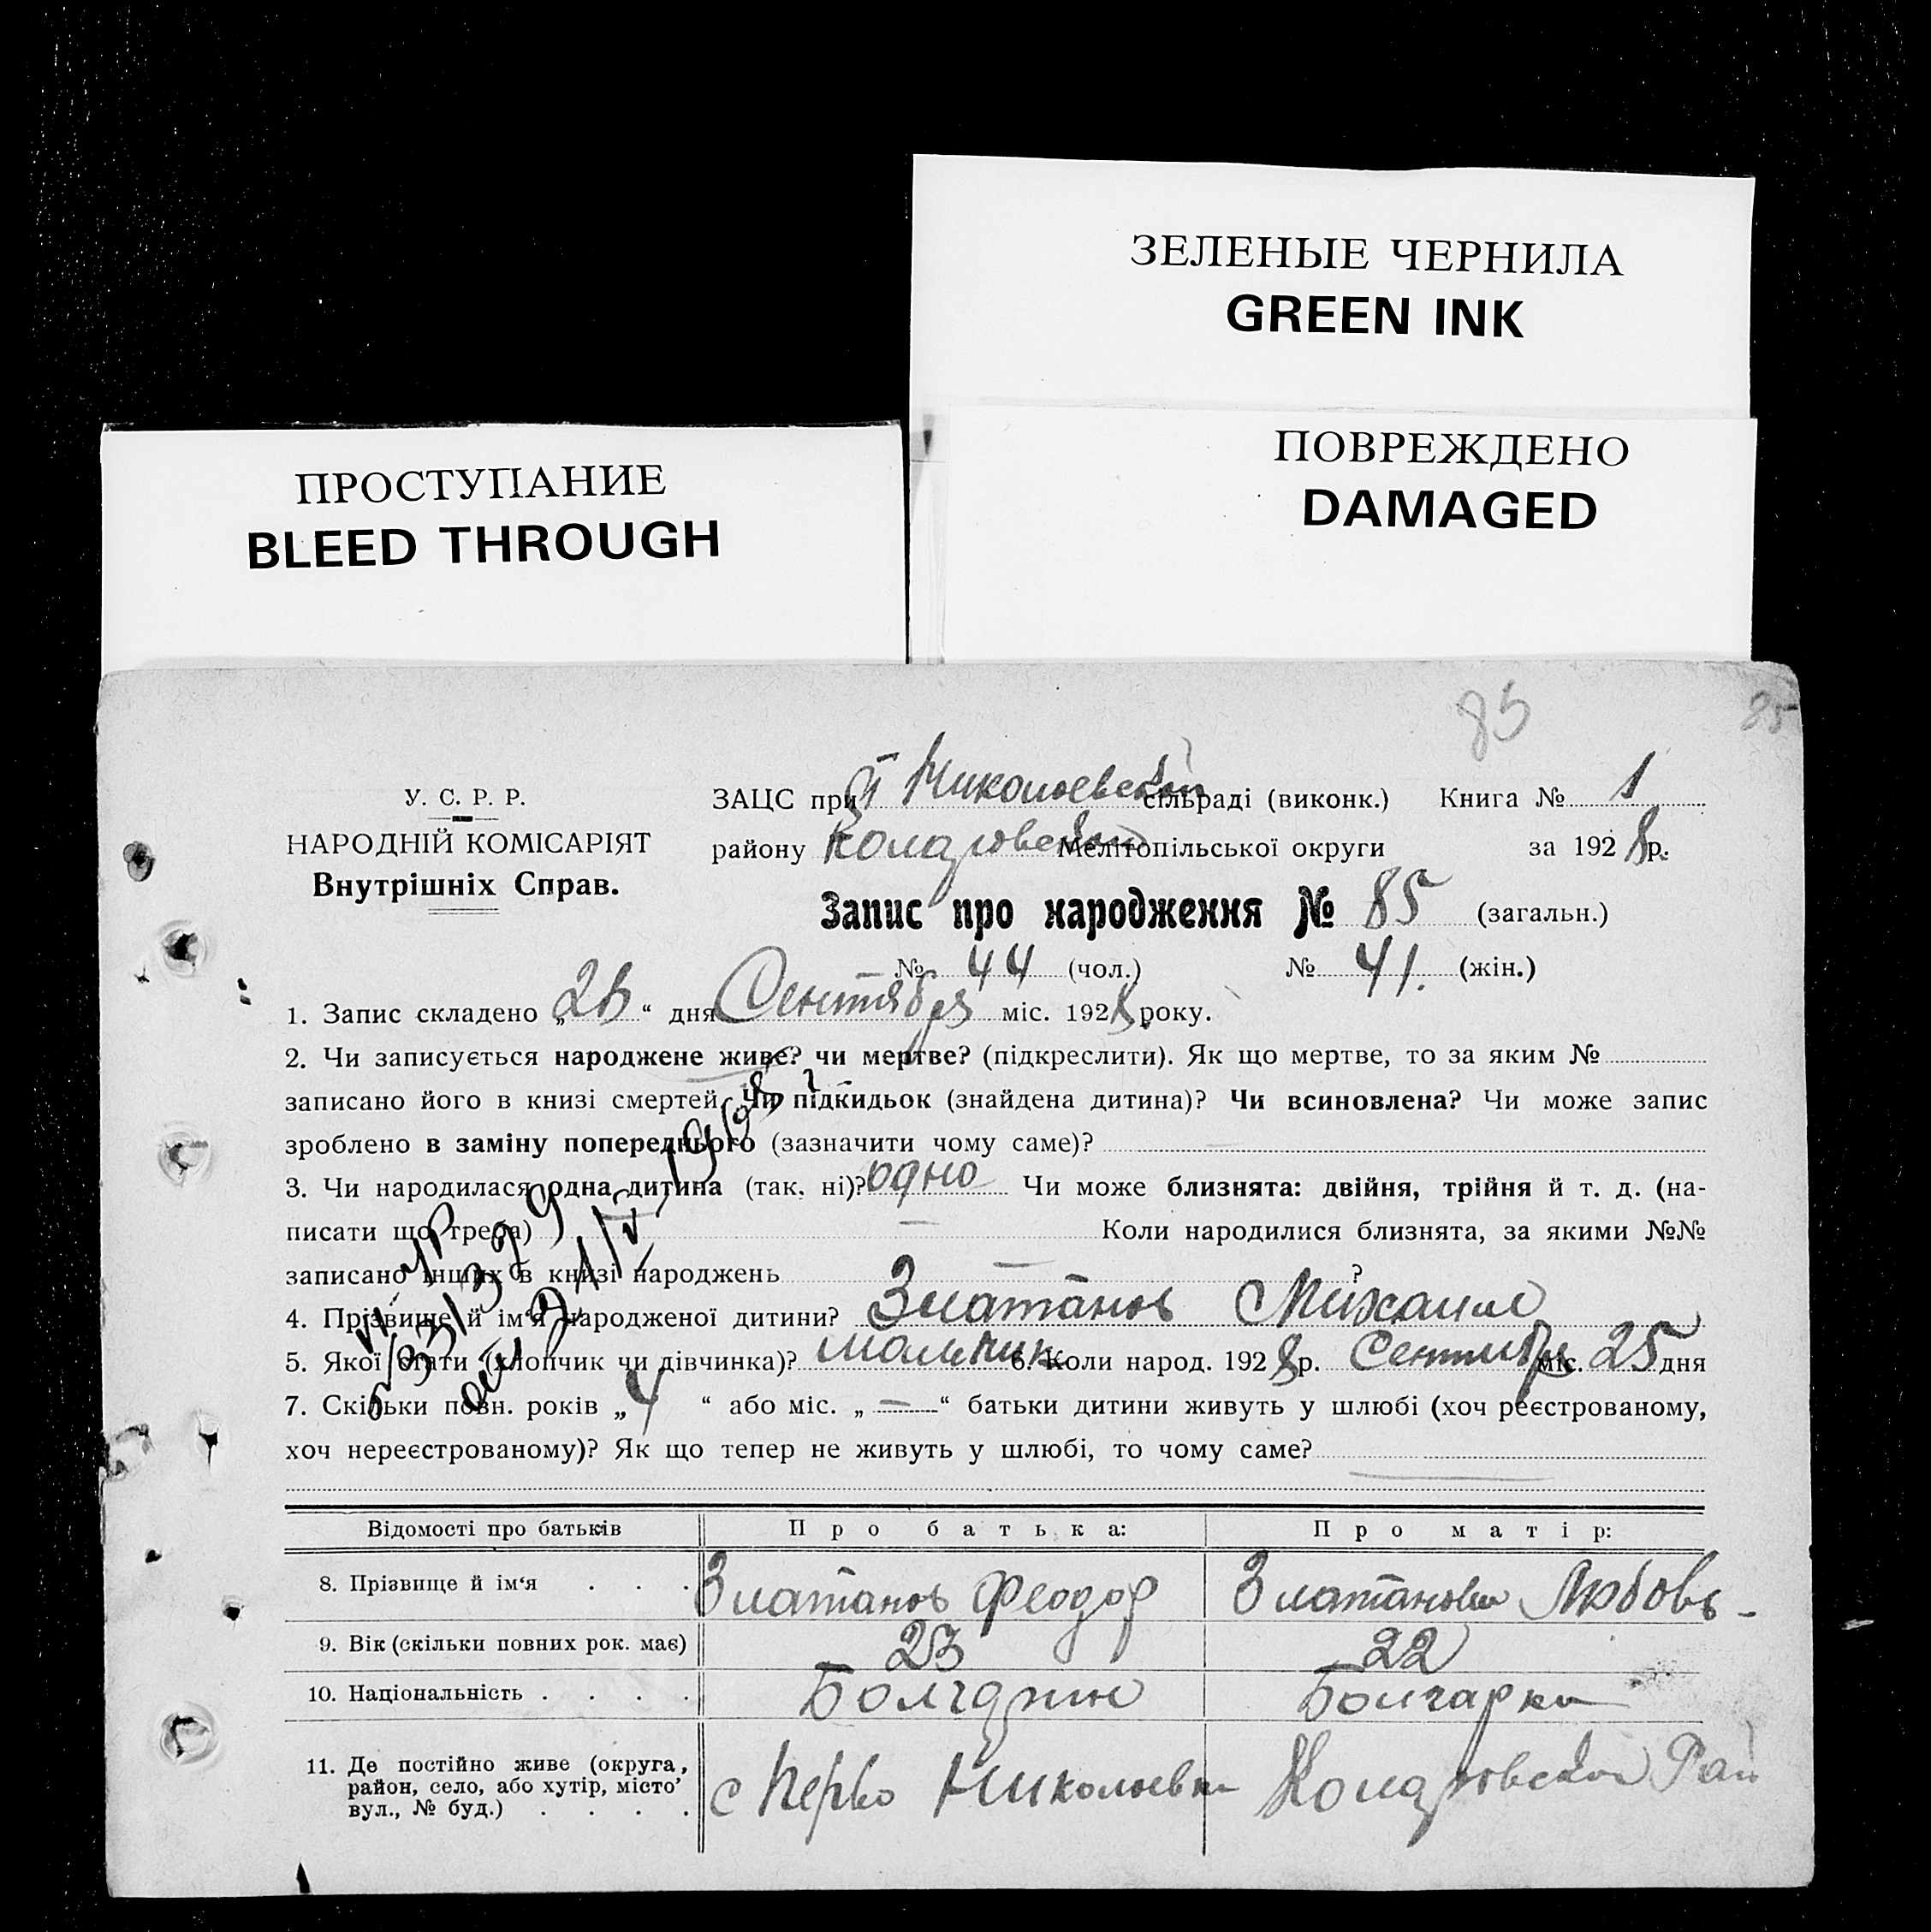 ЗЕЛЕНЫЕ ЧЕРНИЛА
GREEN INK
ПОВРЕЖДЕНО
DAMAGED
ПРОСТУПАНИЕ
BLEED THROUGH
85 85
У. С. Р. Р.
НАРОДНІЙ КОМІСАРІЯТ
Внутрішніх Справ.
ЗАЦС при Николаевской сільраді (виконк.) Книга № 1
району Коларовской Мелітопільської округи за 1928 р.
Запис про народження № 85 (загальн.)
№ 44 (чол.) № 41. (жін.)
1. Запис складено „ “ дня Сентября міс. 1928 року.
2. Чи записується народжене живе? чи мертве? (підкреслити). Як що мертве, то за яким №
записано його в книзі смертей. Чи підкидьок (знайдена дитина)? Чи всиновлена? Чи може запис
зроблено в заміну попереднього (зазначити чому саме)?
3. Чи народилася одна дитина (так, ні)? одно Чи може близнята: двійня, трійня й т. д. (на-
писати що треба) — Коли народилися близнята, за якими №№
записано інших в книзі народжень — ?
4. Прізвище й ім'я народженої дитини? Златанов Михаил
5. Якої статі (хлопчик чи дівчинка)? мальчик 6. Коли народ. 1928 р. Сентября міс. 25 дня
7. Скільки повн. років „ 4 “ або міс. „ — “ батьки дитини живуть у шлюбі (хоч реєстрованому,
хоч нереєстрованому)? Як що тепер не живуть у шлюбі, то чому саме? —
Відомості про батьків Про батька: Про матір:
8. Прізвище й ім‘я . . . Златанов Феодор Златанова Любовь
9. Вік (скільки повних рок. має) 23 22
10. Національність . . . . Болгарин Болгарка
11. Де постійно живе (округа, район, село, або хутір, місто’ вул., № буд.) . . . . с Перво Николаевка Коларовской Рай